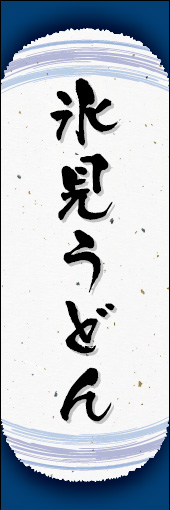 氷見うどん